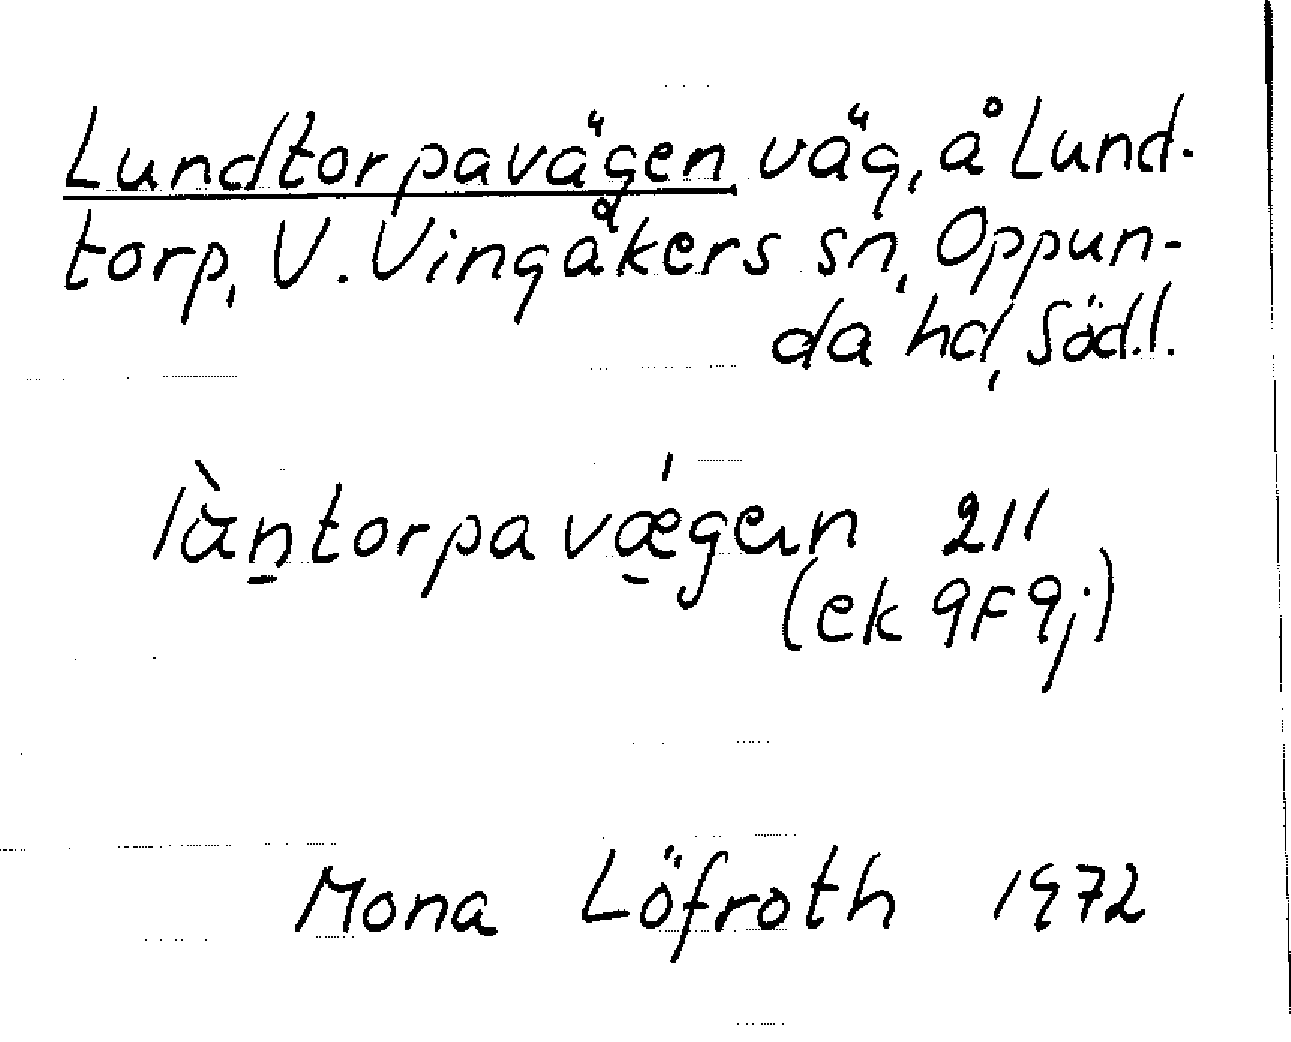 Lundtorpavägen väg, å Lund-
torp, V. Vingåkers sn, Oppun-
da hd, Söd.l.
làn̠torpavǽ̠gen 211
(ek 9F9j)
Mona Löfroth 1972